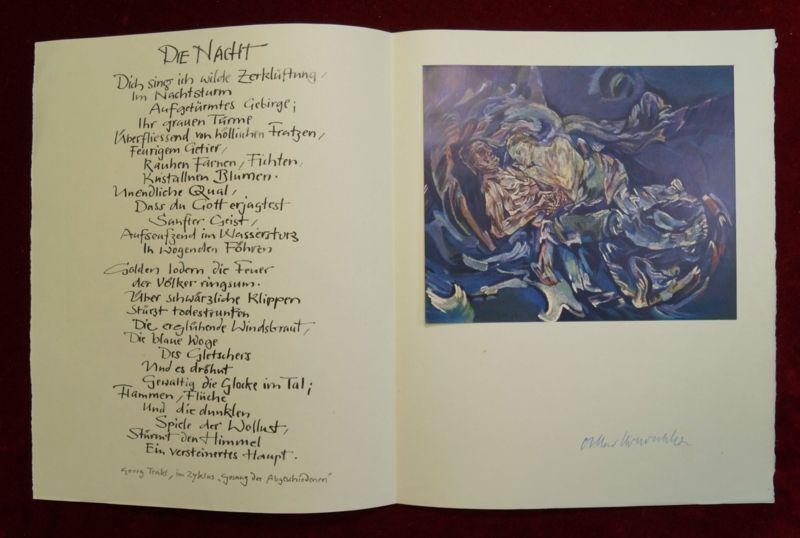 DIE NACHT
Dich sing ich wilde Zerklüftung,
Im Nachtsturm
Aufgetürmtes Gebirge;
Ihr grauen Türme
Überfliessend von höllischen Fratzen,
Feurigem Getier,
Rauhen Farnen, Fichten,
Kristallnen Blumen.
Unendliche Qual,
Dass du Gott erjagtest
Sanfter Geist,
Aufseufzend im Wassersturz
In wogenden Föhren
Golden lodern die Feuer
der Völker ringsum.
Über schwärzliche Klippen
Stürzt todestrunken
Die erglühende Windsbraut,
Die blaue Woge
Des Gletschers
Und es dröhnt
Gewaltig die Glocke im Tal;
Flammen, Flüche
Und die dunklen
Spiele der Wollust,
Stürmt den Himmel
Ein versteinertes Haupt.
Georg Trakl, im Zyklus „Gesang der Abgeschiedenen"